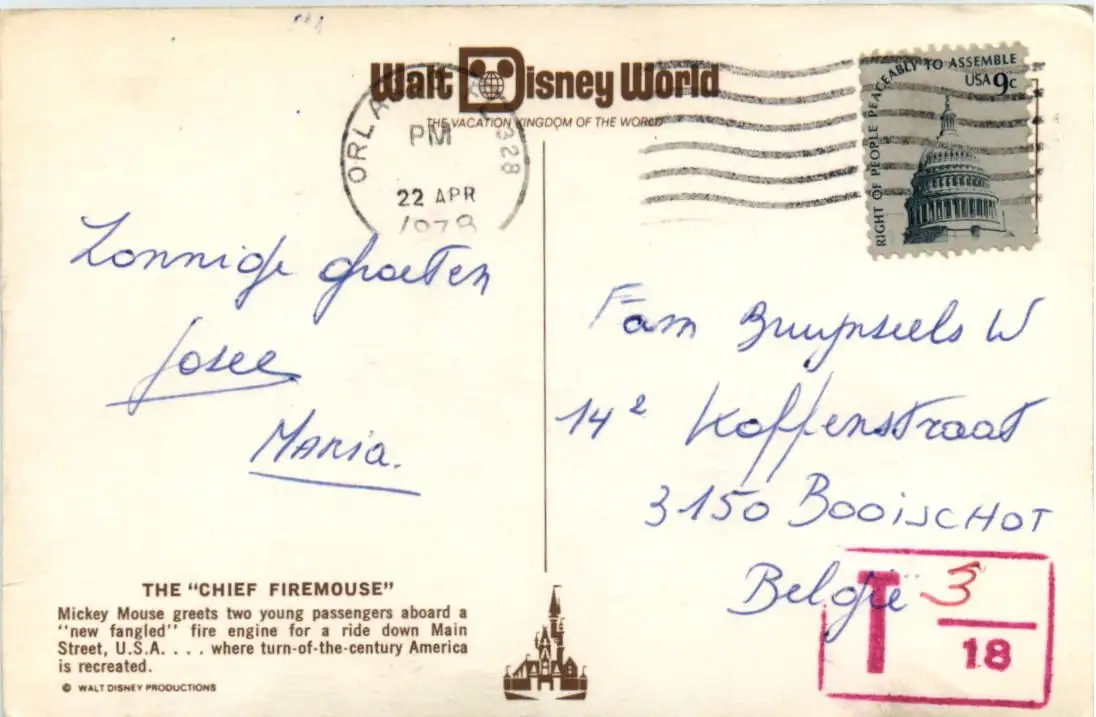 Walt Disney World
THE VACATION KINGDOM OF THE WORLD
PM
328
22 APR
1978
RIGHT OF PEOPLE PEACEABLY TO ASSEMBLE
USA 9c
Zonnige groeten
Josee
Maria.
Fam Bruynseels W
14² Koffenstraat
3150 BOOISCHOT
België
T 3
18
THE "CHIEF FIREMOUSE"
Mickey Mouse greets two young passengers aboard a
"new fangled" fire engine for a ride down Main
Street, U.S.A. . . . where turn-of-the-century America
is recreated.
© WALT DISNEY PRODUCTIONS